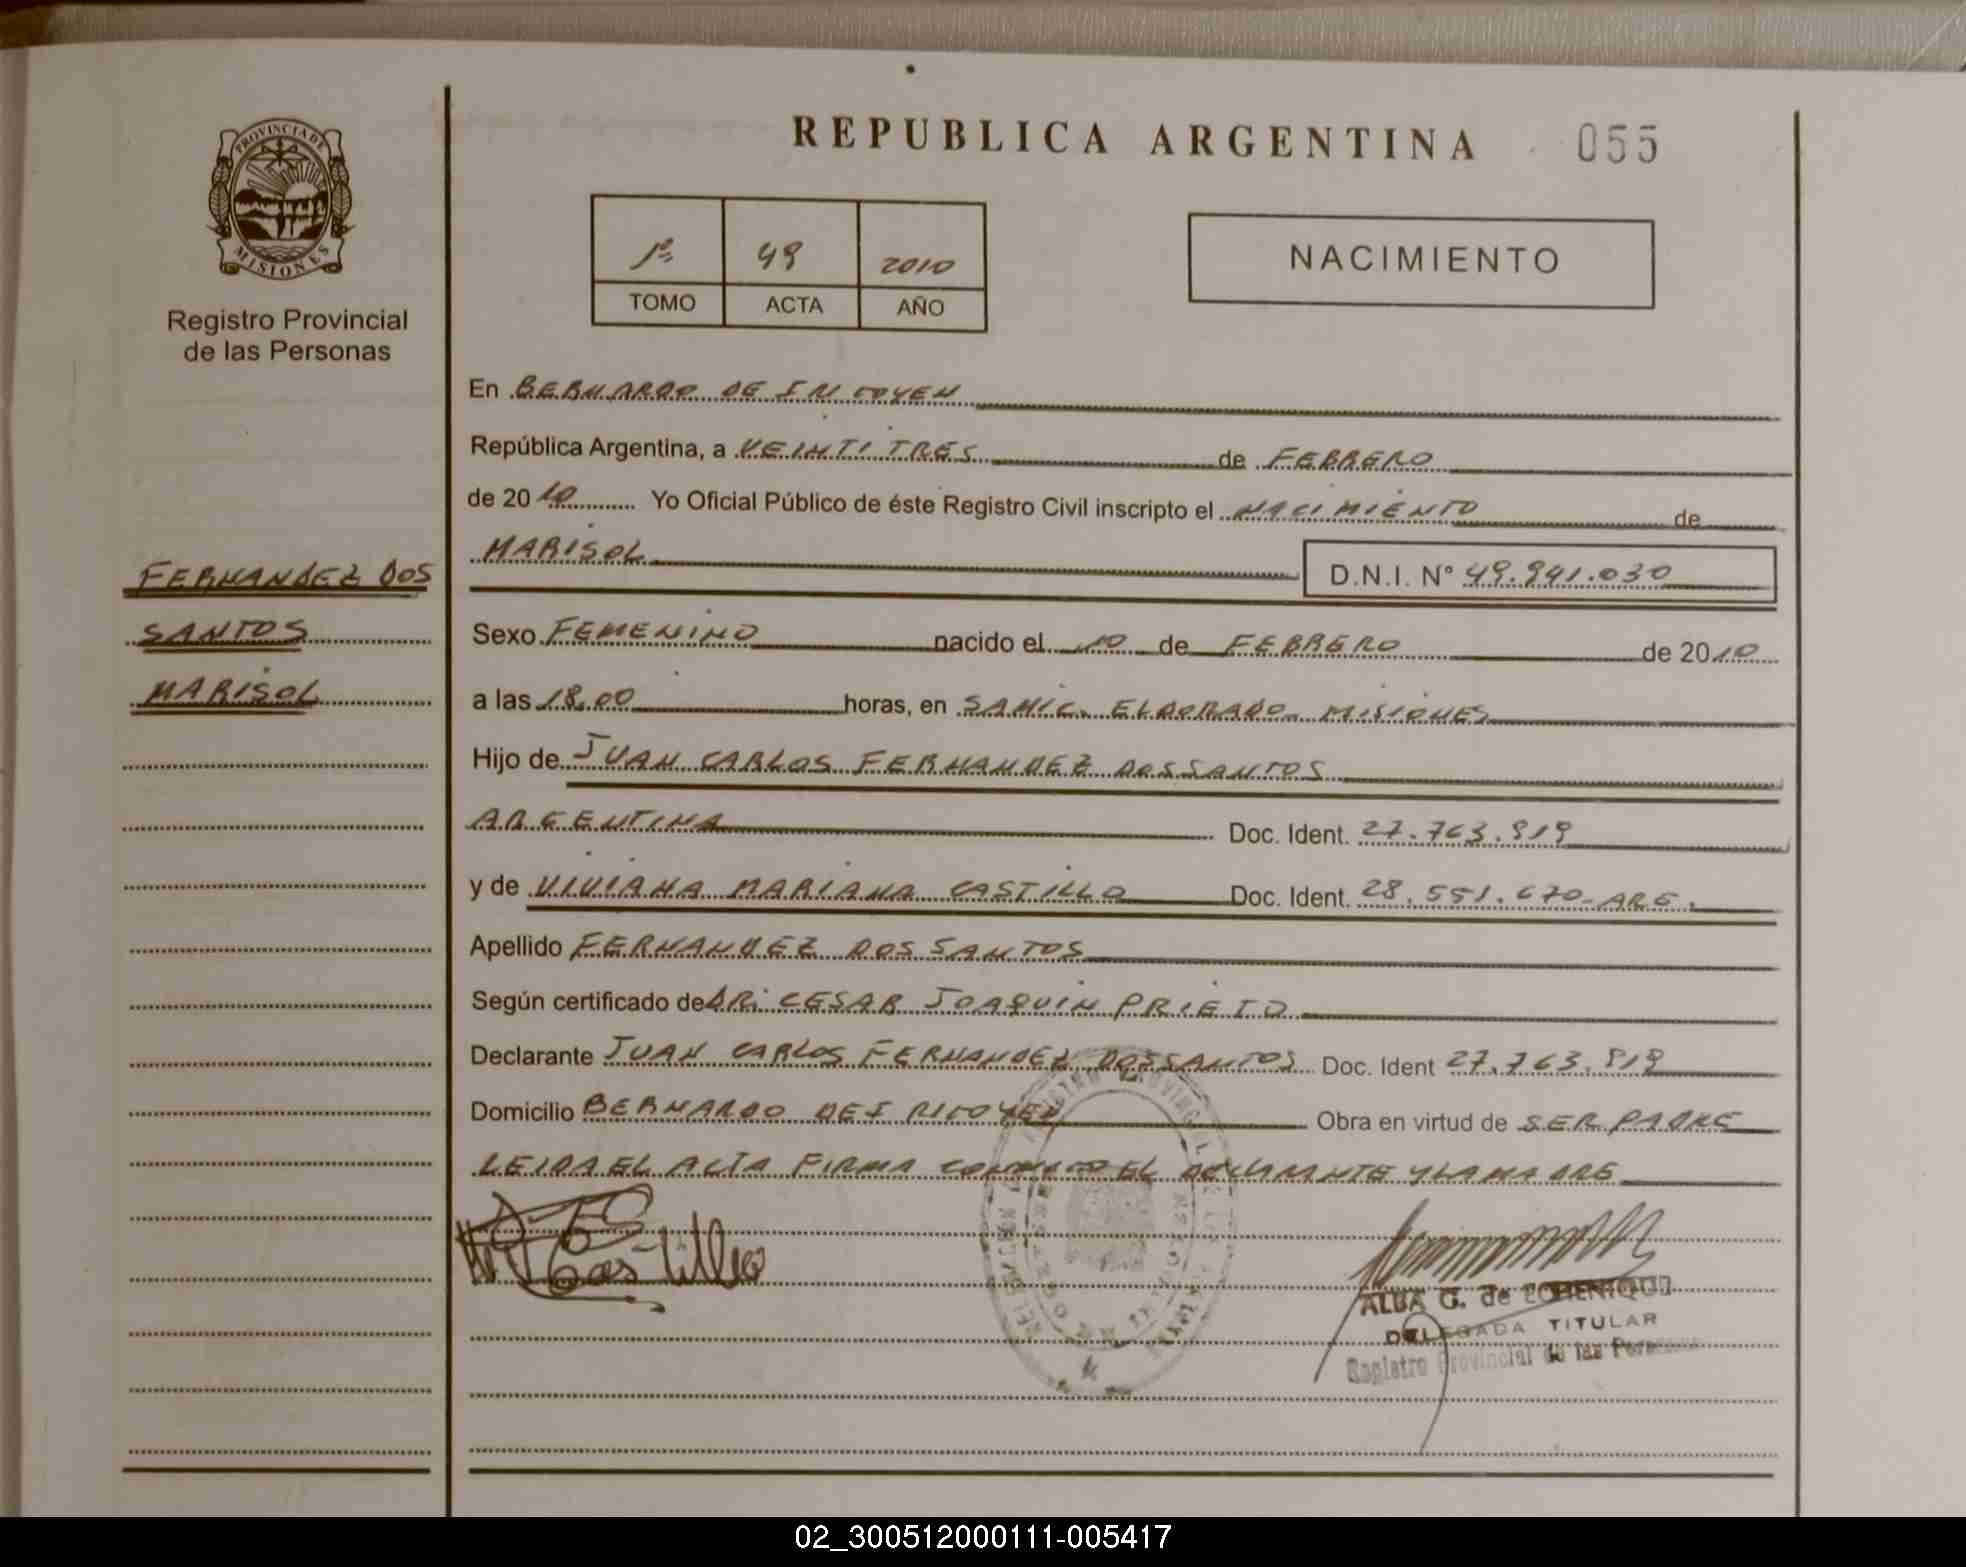 REPUBLICA ARGENTINA 055
PROVINCIA DE
MISIONES
Registro Provincial
de las Personas
1º 49 2010
TOMO ACTA AÑO
NACIMIENTO
En BERNARDO DE IRIGOYEN
República Argentina, a VEINTITRES de FEBRERO
de 2010 Yo Oficial Público de éste Registro Civil inscripto el NACIMIENTO de
MARISOL D.N.I. N° 49.941.030
FERNANDEZ DOS
SANTOS
MARISOL
Sexo FEMENINO nacido el 10 de FEBRERO de 2010
a las 18,00 horas, en SAMIC. ELDORADO MISIONES
Hijo de JUAN CARLOS FERNANDEZ DOS SANTOS
ARGENTINA Doc. Ident. 27.763.919
y de VIVIANA MARIANA CASTILLO Doc. Ident. 28.551.670-ARG.
Apellido FERNANDEZ DOS SANTOS
Según certificado de DR. CESAR JOAQUIN PRIETO
Declarante JUAN CARLOS FERNANDEZ DOS SANTOS Doc. Ident 27.763.919
Domicilio BERNARDO DE IRIGOYEN Obra en virtud de SER PADRE
LEIDA EL ACTA FIRMA CONMIGO EL DECLARANTE Y LA MADRE
Castillo
ALBA G. de
DELEGADA TITULAR
Registro Provincial de las Personas
02_300512000111-005417